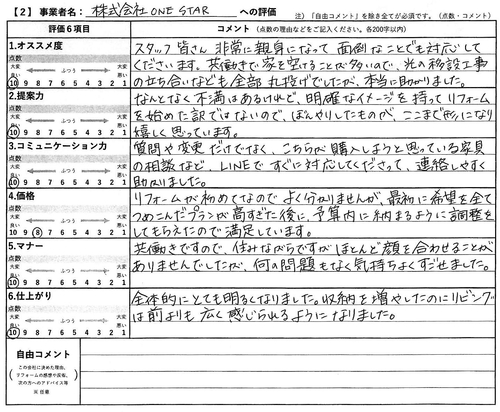 【2】事業者名： 株式会社ONE STAR への評価
注）「自由コメント」を除き全てが必須です。（点数・コメント）
評価6項目
コメント（点数の理由などをご記入ください。各200字以内）
1.オススメ度
点数
大変良い ふつう 大変悪い
10 9 8 7 6 5 4 3 2 1
スタッフ皆さん非常に親身になって面倒なことでも対応して
くださいます。共働きで家を空けることが多いので、光の移設工事
の立ち合いなども全部丸投げでしたが、本当に助かりました。
2.提案力
点数
大変良い ふつう 大変悪い
10 9 8 7 6 5 4 3 2 1
なんとなく不満はあるけれど、明確なイメージを持ってリフォーム
を始めた訳ではないので、ぼんやりしたものが、ここまで形になり
嬉しく思っています。
3.コミュニケーション力
点数
大変良い ふつう 大変悪い
10 9 8 7 6 5 4 3 2 1
質問や変更だけでなく、こちらが購入しようと思っている家具
の相談など、LINEですぐに対応してくださって、連絡しやすく
助かりました。
4.価格
点数
大変良い ふつう 大変悪い
10 9 8 7 6 5 4 3 2 1
リフォームが初めてなのでよく分かりませんが、最初に希望を全て
つめこんだプランが高すぎた後に、予算内に納まるように調整を
してもらえたので満足しています。
5.マナー
点数
大変良い ふつう 大変悪い
10 9 8 7 6 5 4 3 2 1
共働きですので、住みながらですがほとんど顔を合わせることが
ありませんでしたが、何の問題もなく気持ちよくすごせました。
6.仕上がり
点数
大変良い ふつう 大変悪い
10 9 8 7 6 5 4 3 2 1
全体的にとても明るくなりました。収納を増やしたのにリビング
は前よりも広く感じられるようになりました。
自由コメント
この会社に決めた理由、
リフォームの感想や反省、
次の方へのアドバイス等
※任意